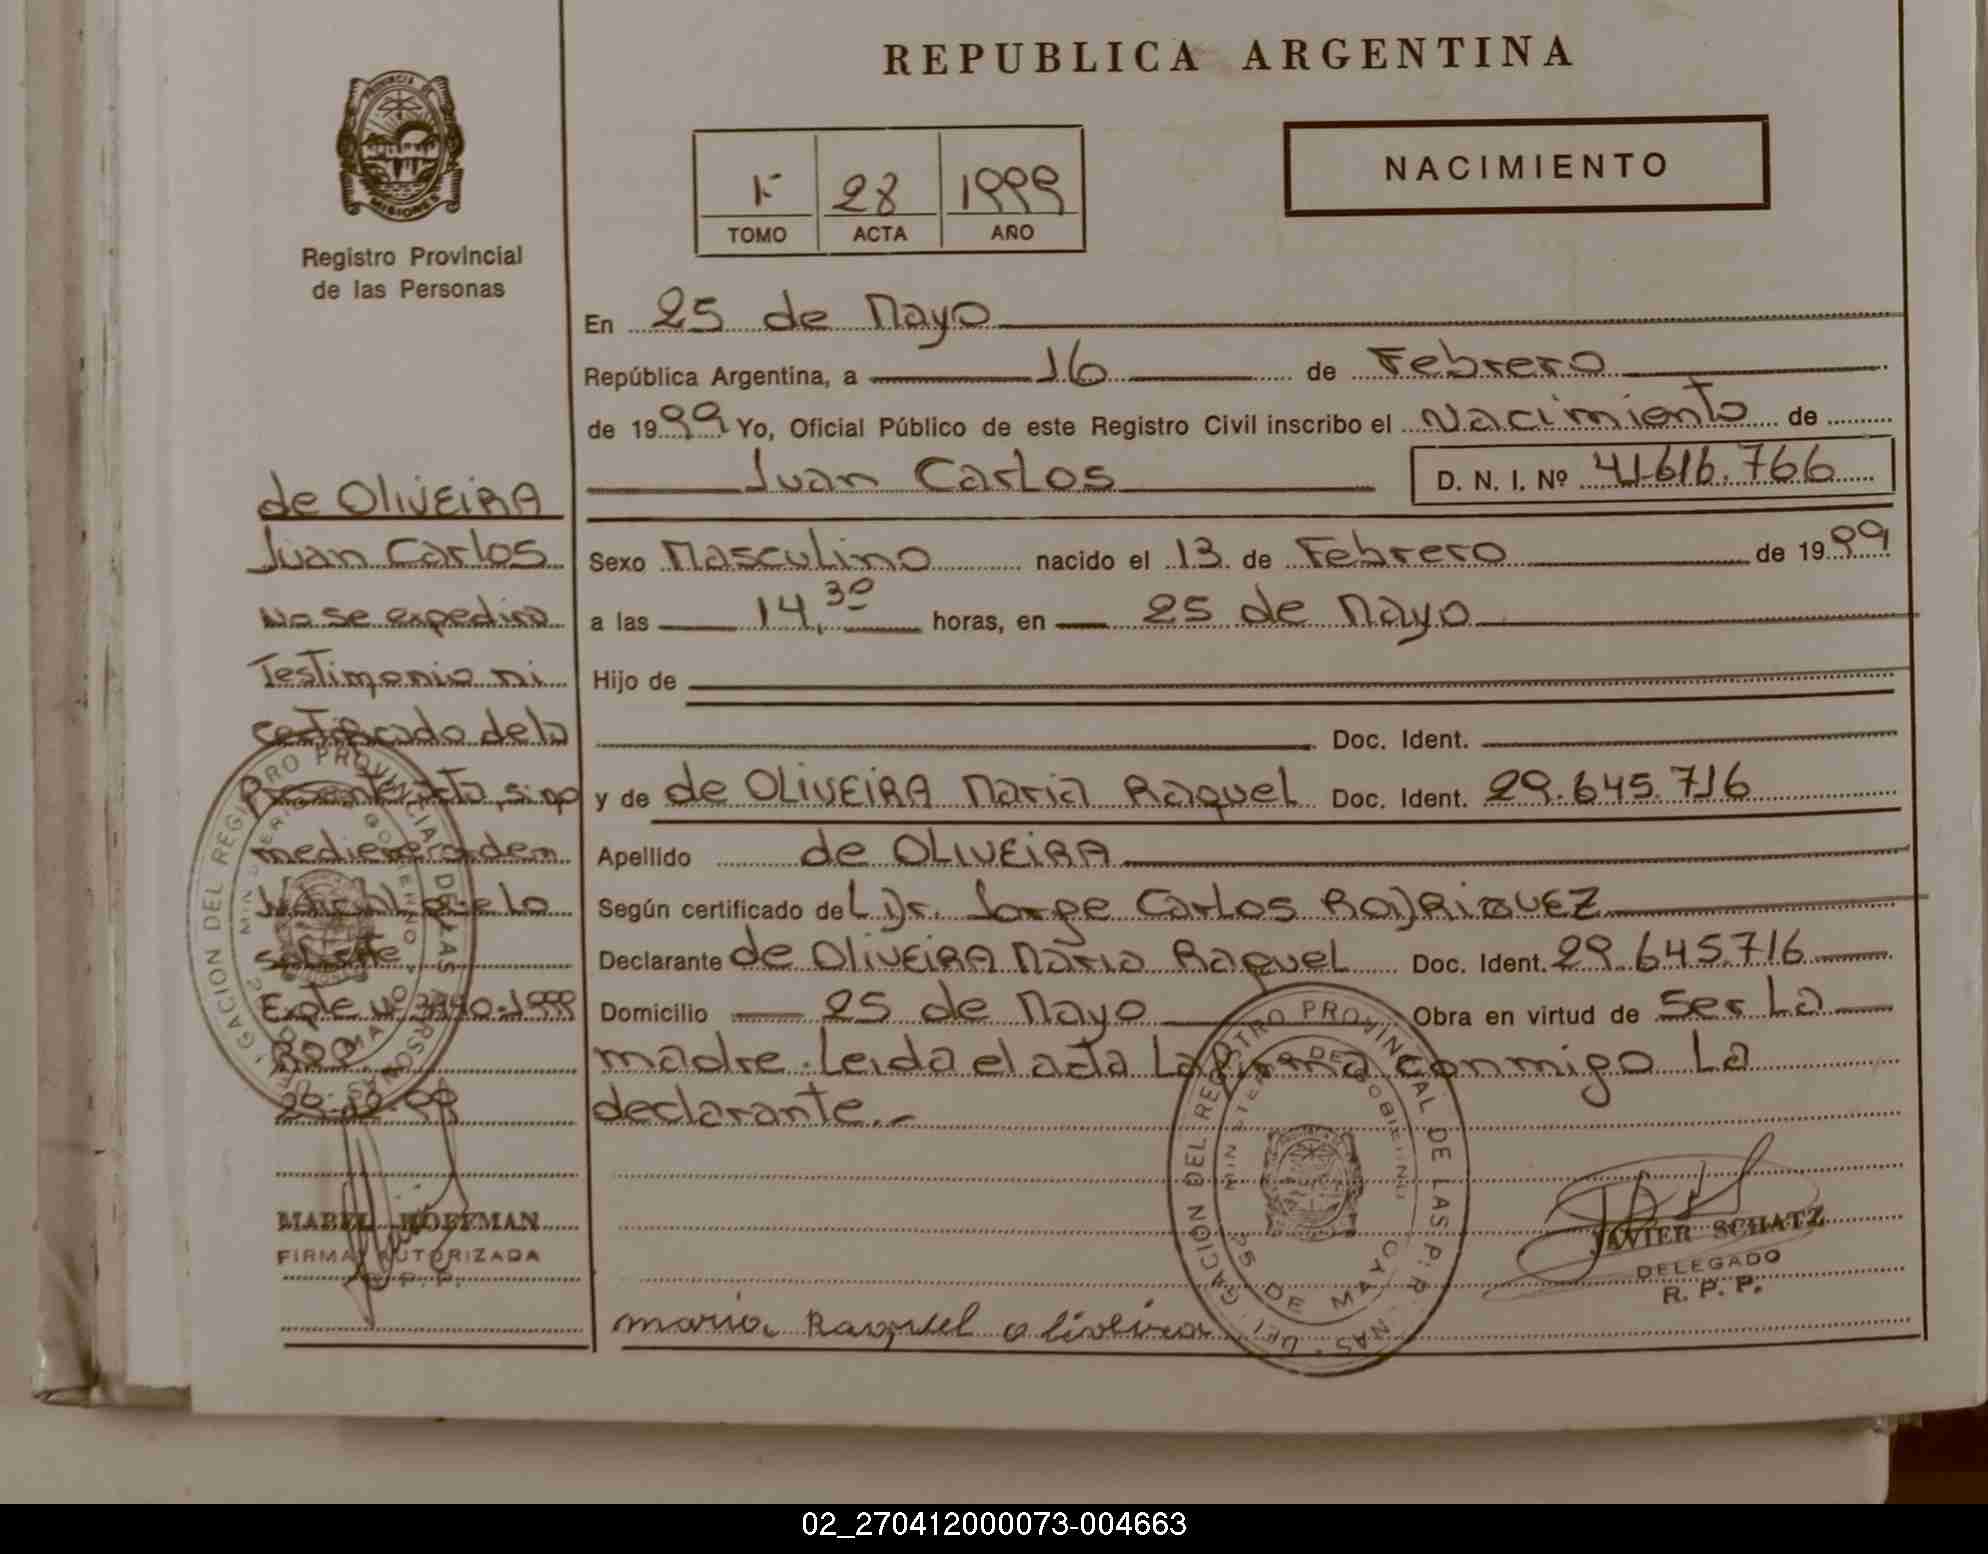 REPUBLICA ARGENTINA
PROVINCIA DE MISIONES
Registro Provincial
de las Personas
28 1999
TOMO ACTA AÑO
NACIMIENTO
En 25 de Mayo
República Argentina, a 16 de Febrero
de 1999 Yo, Oficial Público de este Registro Civil inscribo el Nacimiento de
Juan Carlos D. N. I. Nº 41.616.766
Sexo Masculino nacido el 13 de Febrero de 1999
a las 14,30 horas, en 25 de Mayo
Hijo de
Doc. Ident.
y de de OLIVEIRA Maria Raquel Doc. Ident. 29.645.716
Apellido de OLIVEIRA
Según certificado del Dr. Jorge Carlos RODRIGUEZ
Declarante de OLIVEIRA Maria Raquel Doc. Ident. 29.645.716
Domicilio 25 de Mayo Obra en virtud de ser La
madre. Leida el acta La firma conmigo La
declarante.-
de OLIVEIRA
Juan Carlos
No se expedira
Testimonio ni
certificado de la
Presente acta, sino
mediere orden
Judicial que lo
Expte Nº 1999
MABEL HOFFMAN
FIRMA AUTORIZADA
R. P. P.
maria Raquel oliveira
DELEGACION DEL REGISTRO PROVINCIAL DE LAS PERSONAS
MINISTERIO DE GOBIERNO
25 DE MAYO
JAVIER SCHATZ
DELEGADO
R. P. P.
02_270412000073-004663